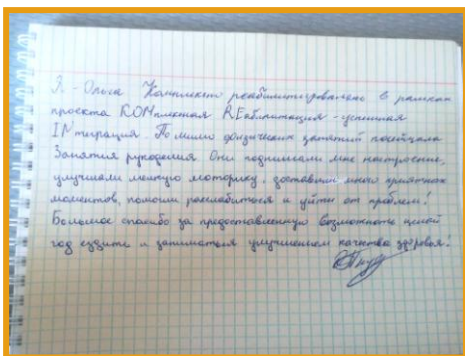 Я - Ольга Комплексно реабилитирована в рамках
проекта КОМплексная REабилитация - успешная
INтеграция. Помимо физических занятий посещала
Занятия рукоделия. Они поднимали мне настроение,
улучшали мелкую моторику, доставили много приятных
моментов, помогли расслабиться и уйти от проблем!
Большое спасибо за предоставленную возможность целый
год ездить и заниматься улучшением качества здоровья!